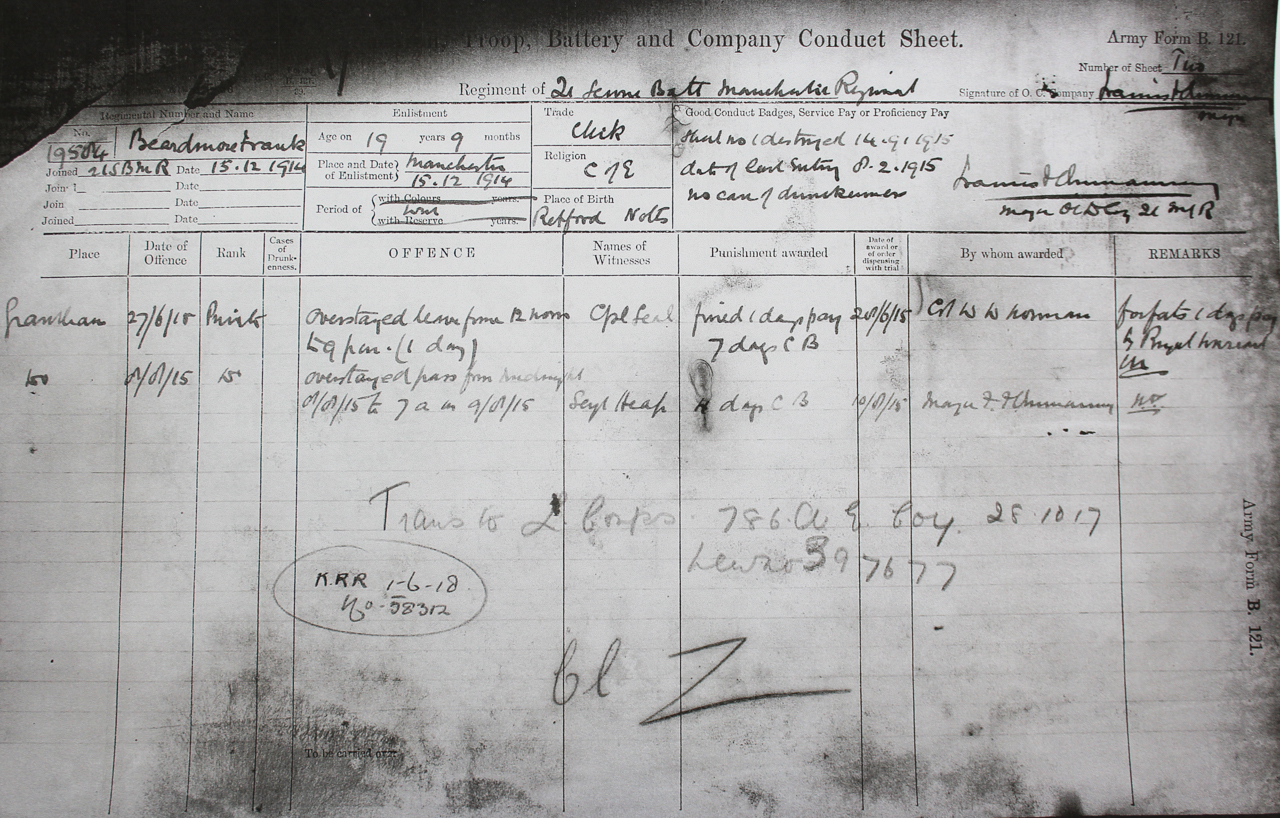 Troop, Battery and Company Conduct Sheet.
Army Form B. 121.
Number of Sheet Two
Regiment of 21 Batt Manchester Regiment
Signature of O. C. Company
Major
Regimental Number and Name
No. 19504 Beardmore Frank
Joined 21SBMR Date 15.12 1914
Join Date
Join Date
Joined Date
Enlistment
Age on 19 years 9 months
Place and Date of Enlistment Manchester
15.12 1914
Period of with Colours years.
with Reserve years.
Trade
Clerk
Religion
C of E
Place of Birth
Retford Notts
Good Conduct Badges, Service Pay or Proficiency Pay
Sheet no 1 destroyed 14.9.1915
date of last entry 8.2.1915
no case of drunkenness
Major OC D Coy 21 M R
Place
Date of Offence
Rank
Cases of Drunk-enness.
OFFENCE
Names of Witnesses
Punishment awarded
Date of award or of order dispensing with trial
By whom awarded
REMARKS
Grantham 27/6/15 Private overstayed leave from 12 noon Cpl Seal fined 1 days pay 28/6/15 Col W W Norman forfeits 1 days pay
to 9 pm. (1 day) 7 days C B by Royal Warrant
do 8/8/15 do overstayed pass from midnight
8/8/15 to 7 a m 9/8/15 Sergt Heap days C B 10/8/15 Major
Trans to L. Corps. 786. A. E. Coy. 28.10.17
New no 397677
K.R.R 1-6-18
No. 58312
Cl Z
To be carried over.
Army Form B. 121.